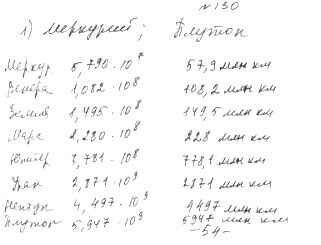 № 130
1) Меркурий; Плутон
Меркур 5,790 · 10⁷ 57,9 млн км
Венера 1,082 · 10⁸ 108,2 млн км
Земля 1,495 · 10⁸ 149,5 млн км
Марс 2,280 · 10⁸ 228 млн км
Юпитр 7,781 · 10⁸ 778,1 млн км
Уран 2,871 · 10⁹ 2871 млн км
Нептун 4,497 · 10⁹ 4497 млн км
Плутон 5,947 · 10⁹ 5947 млн км
-54-